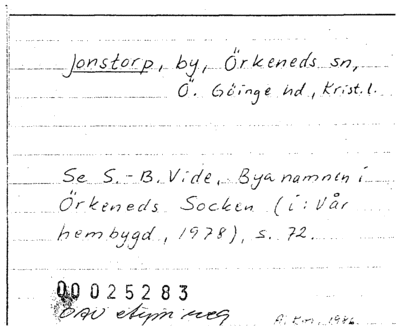 Jonstorp, by, Örkeneds sn,
Ö. Göinge hd, Krist.l.
Se S.-B. Vide, Byanamnen i
Örkeneds Socken (i: Vår
hembygd, 1978), s. 72.
00025283
OAU
1986